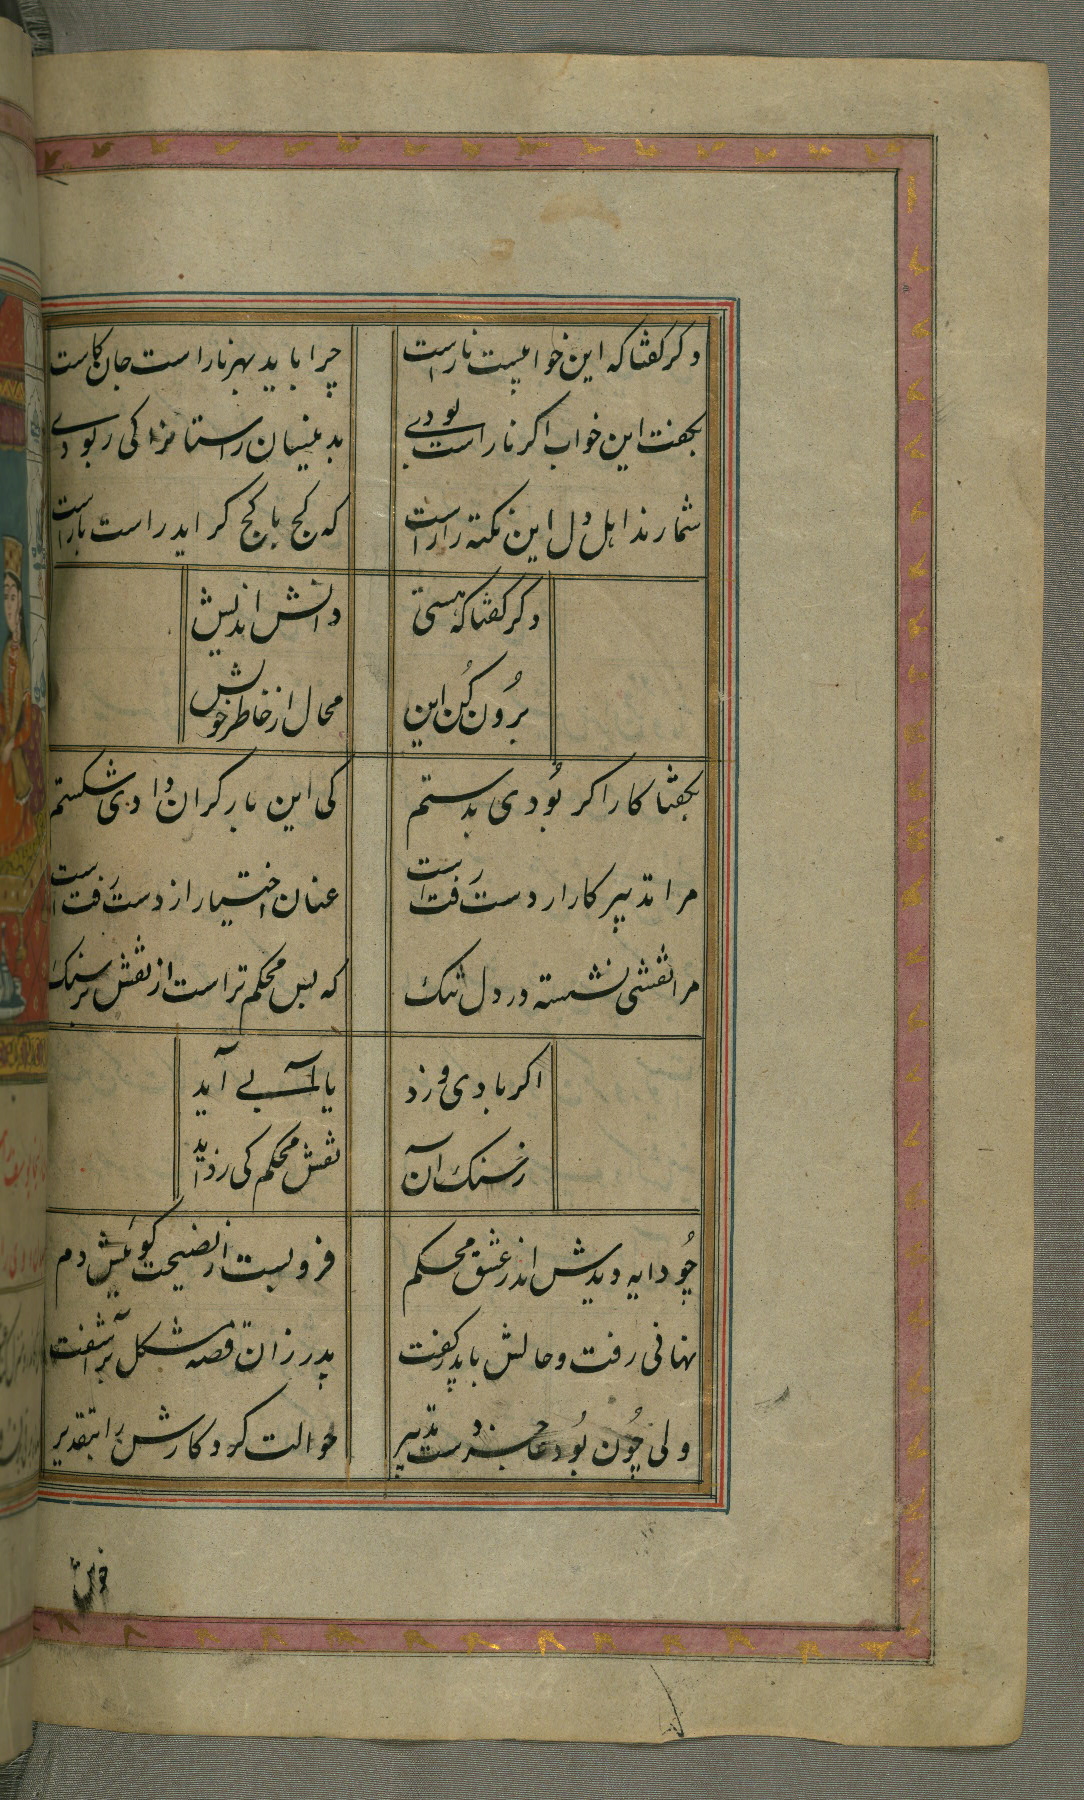 دگر گفتا که این خوابیست ناراست
چرا باید بهر ناراست جان کاست
بگفت این خواب اگر ناراست بودی
بدینسان راستا مرا کی ربودی
شمارند اهل دل این نکته را راست
که کج با کج گراید راست با راست
دگر گفتا که هستی
دانش اندیش
برون کن این
محال از خاطر خویش
بگفتا کار اگر بودی بدستم
کی این بار گران دادی شکستم
مرا تدبیر کار از دست رفتست
عنان اختیار از دست رفتست
مرا نقشی نشسته در دل تنگ
که بس محکم تر است از نقش بر سنگ
اگر بادی وزد
یا آبی آید
ز سنگ آن
نقش محکم کی زداید
چو دایه دیدش اندر عشق محکم
فرو بست از نصیحت گوئیش دم
نهانی رفت و حالش با پدر گفت
پدر زان قصه مشکل برآشفت
ولی چون بود عاجز دست تدبیر
حوالت کرد کارش را بتقدیر